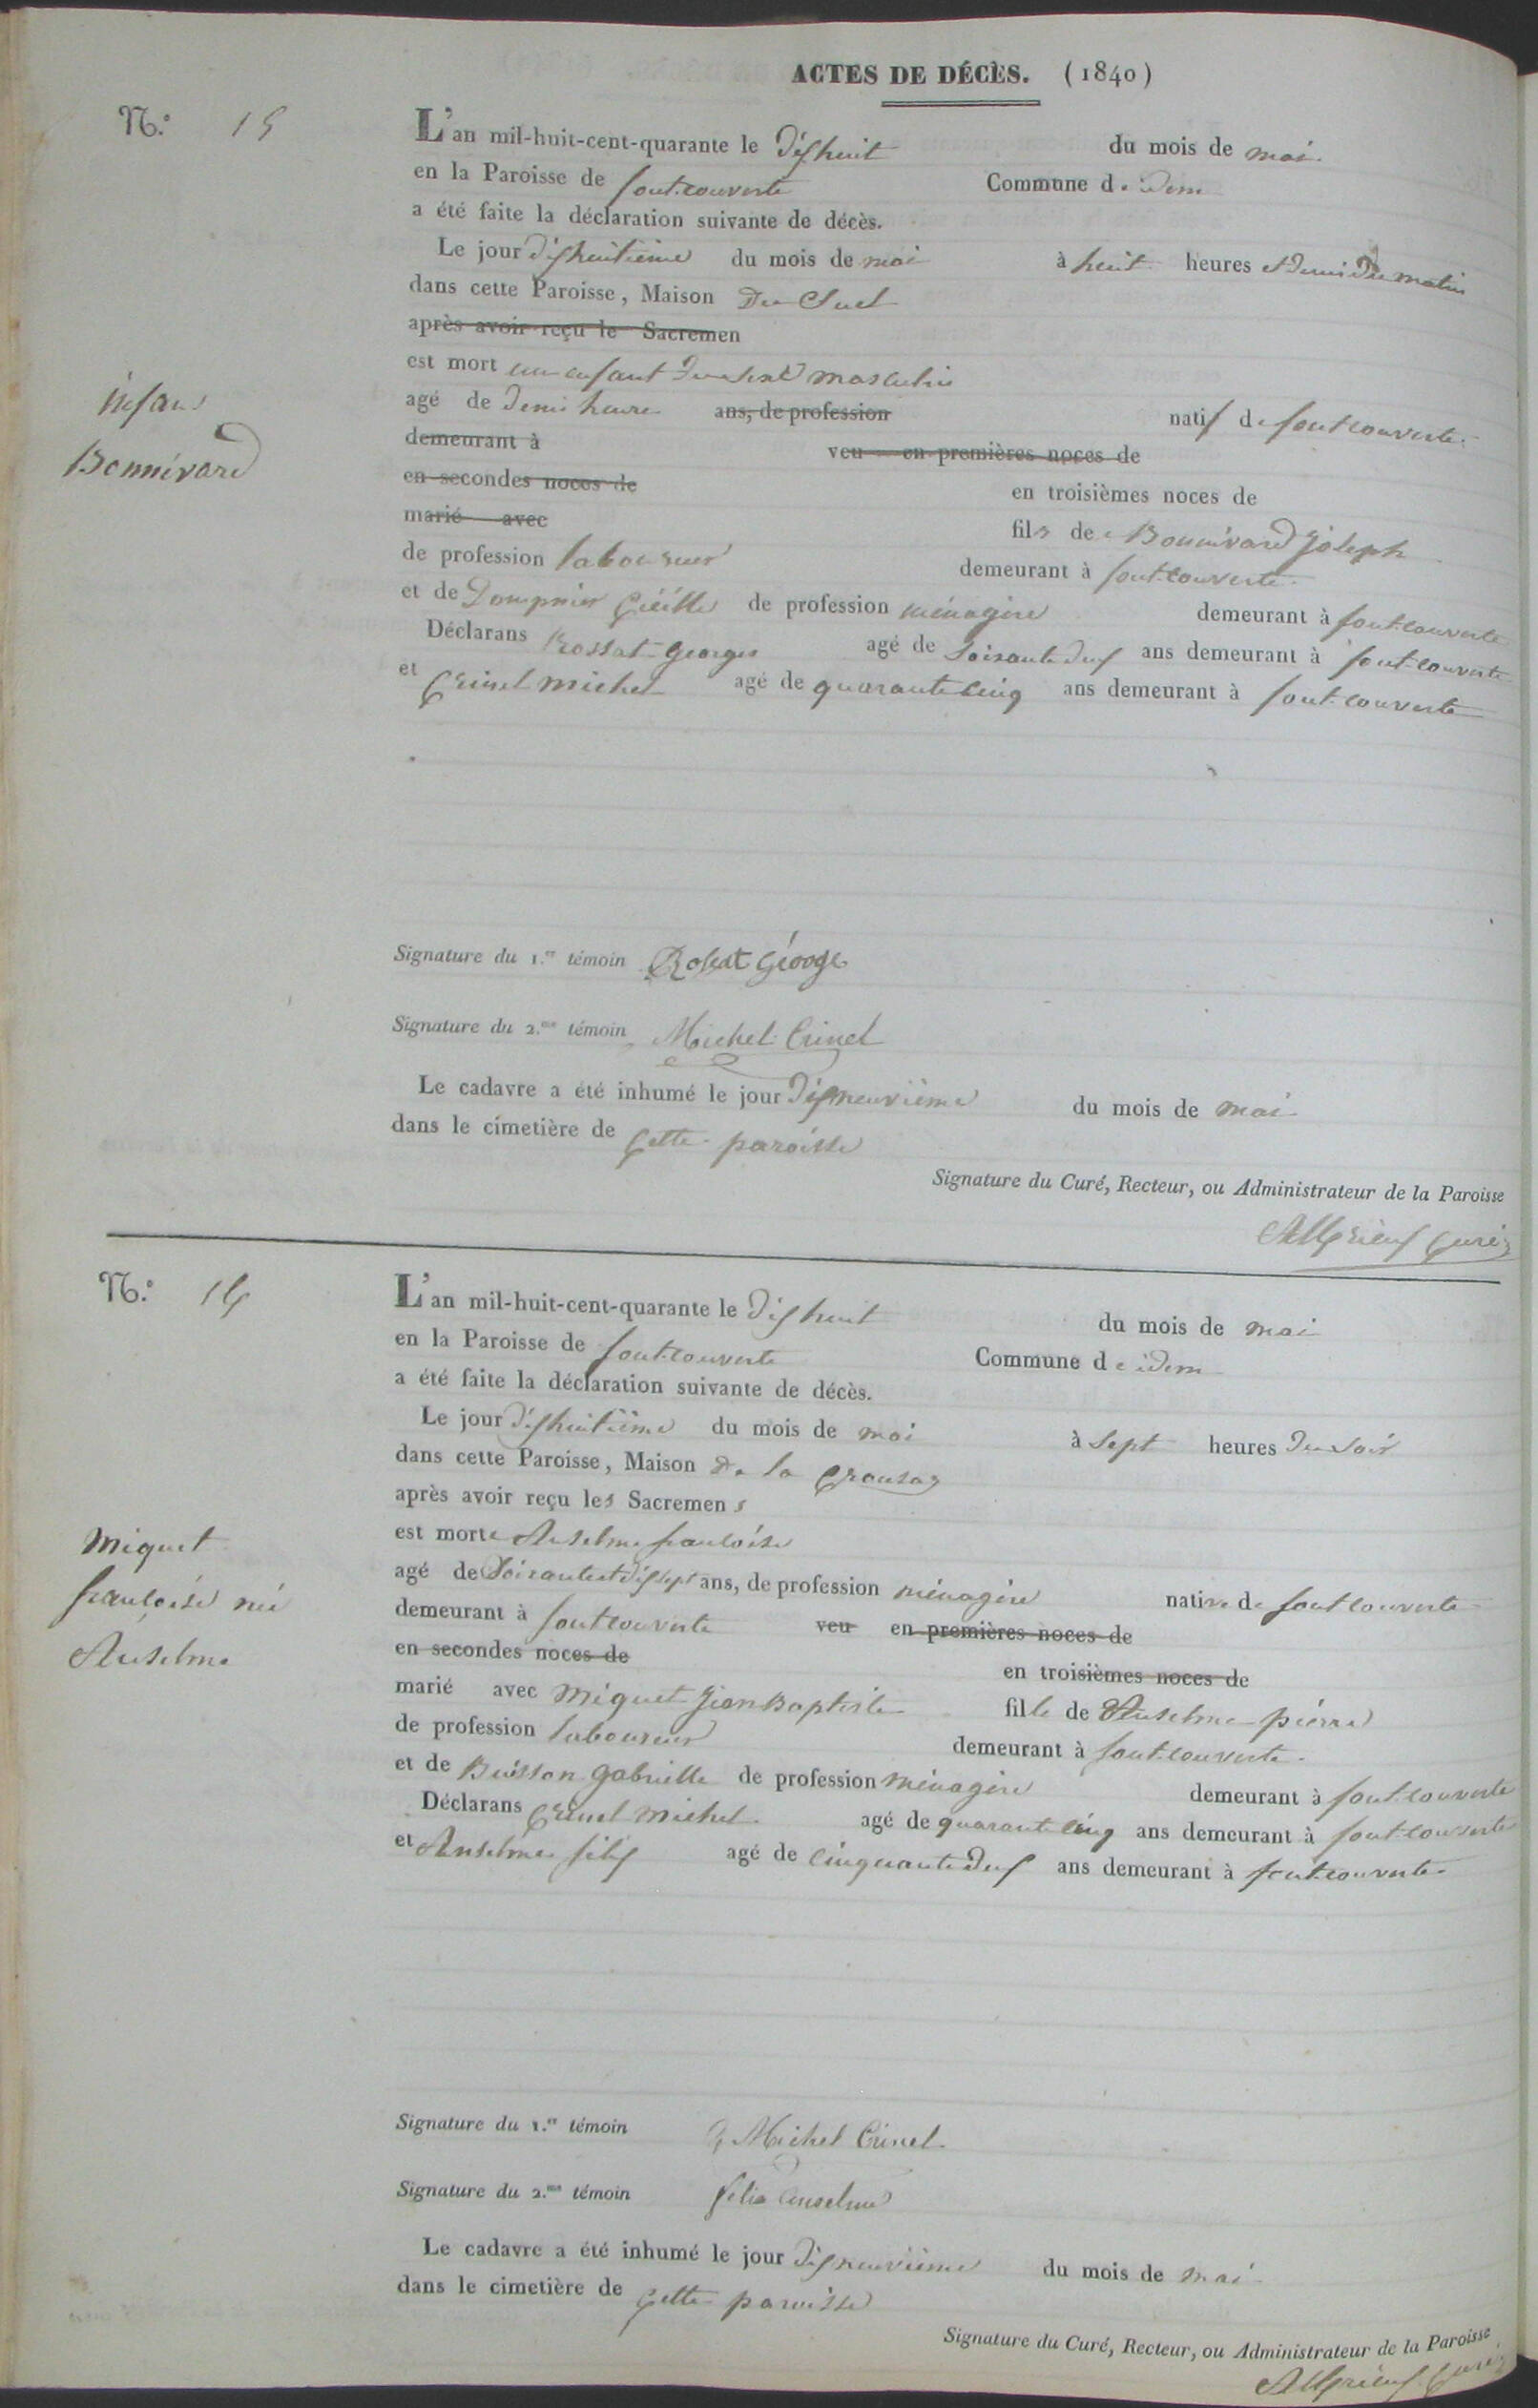 ACTES DE DÉCÈS. (1840)
N.o 15
L'an mil-huit-cent-quarante le dishuit du mois de mai
en la Paroisse de fontcouverte Commune de idem
a été faite la déclaration suivante de décès.
Le jour dishuitième du mois de mai à huit heures et demi du matin
dans cette Paroisse, Maison Du Cuel
après avoir reçu le Sacremen
est mort un enfant du sexe masculin
infant
Bonnivard
agé de demi heure ans, de profession natif de fontcouverte
demeurant à veu en premières noces de
en secondes noces de en troisièmes noces de
marié avec fils de Bonnivard joseph
de profession laboureur demeurant à fontcouverte
et de Dompnier de profession ménagère demeurant à fontcouverte
Déclarans Rossat Georges agé de soisante deus ans demeurant à fontcouverte
et Crinel michel agé de quarante cinq ans demeurant à fontcouverte
Signature du 1.er témoin Rosat Géorge
Signature du 2.me témoin Michel Crinel
Le cadavre a été inhumé le jour disneuvième du mois de mai
dans le cimetière de cette paroisse
Signature du Curé, Recteur, ou Administrateur de la Paroisse
curé
N.o
L'an mil-huit-cent-quarante le dishuit du mois de mai
en la Paroisse de fontcouverte Commune de idem
a été faite la déclaration suivante de décès.
Le jour dishuitième du mois de mai à sept heures du soir
dans cette Paroisse, Maison de la
après avoir reçu les Sacremens
est morte Anselme françoise
miquet
françoise née
Anselme
agé de soisante et dissept ans, de profession ménagère native de fontcouverte
demeurant à fontcouverte veu en premières noces de
en secondes noces de en troisièmes noces de
marié avec miquet jean Baptiste fille de Anselme pierre
de profession laboureur demeurant à fontcouverte
et de Buisson gabrielle de profession ménagère demeurant à fontcouverte
Déclarans Crinel michel agé de quarante cinq ans demeurant à fontcouverte
et Anselme félis agé de cinquante deus ans demeurant à fontcouverte
Signature du 1.er témoin Michel Crinel
Signature du 2.me témoin félix anselme
Le cadavre a été inhumé le jour disneuvième du mois de mai
dans le cimetière de cette paroisse
Signature du Curé, Recteur, ou Administrateur de la Paroisse
curé